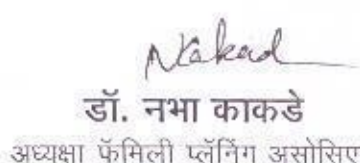 Nakad
डॉ. नभा काकडे
अध्यक्षा फॅमिली प्लॅनिंग